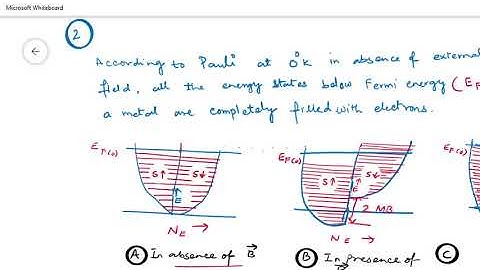 Microsoft Whiteboard
2
According to Pauli at 0°K in absence of external
field, all the energy states below Fermi energy (EF
a metal are completely filled with electrons.
EF(0) S↑ S↓ E
EF(0) S↑ S↓ E
2 MB
NE →
NE →
A In absence of B
B In presence of
C